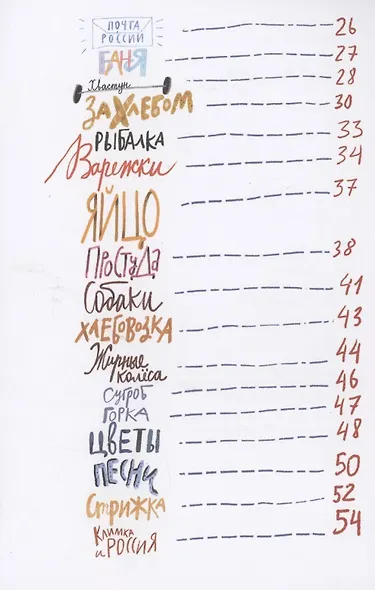 ПОЧТА
РОССИИ 26
БАНЯ 27
Хвастун 28
ЗА ХЛЕБОМ 30
РЫБАЛКА 33
Варежки 34
ЯЙЦО 37
ПРОСТУДА 38
Собаки 41
ХЛЕБОВОЗКА 43
Жирные
колёса 44
Сугроб 46
ГОРКА 47
ЦВЕТЫ 48
ПЕСНИ 50
Стрижка 52
Климка
и РОССИЯ 54